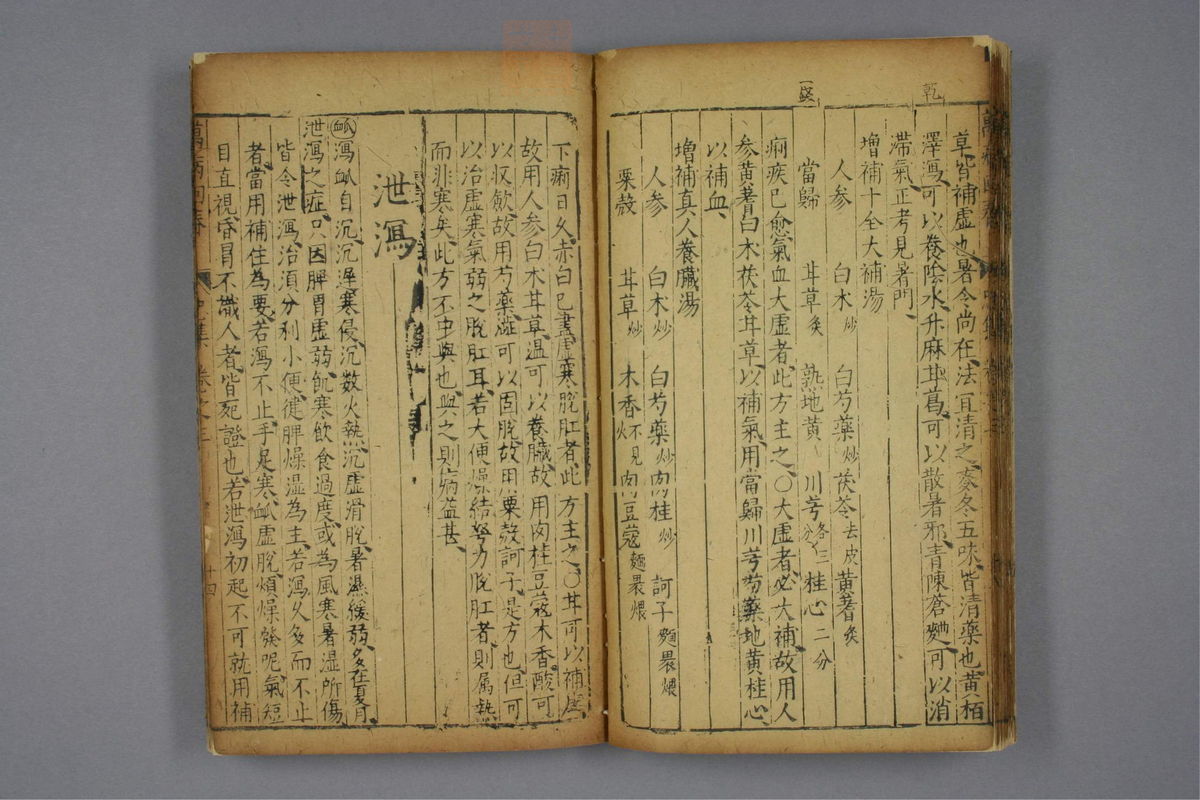 草皆補虛也暑令尚在法宜清之麥冬五味皆清藥也黃栢
澤瀉可以養陰水升麻葛可以散暑邪青陳蒼麯可以消
滯氣正考見暑門
增補十全大補湯
人參 白木炒 白芍藥炒 茯苓去皮 黃蓍炙
當歸 耳草炙 熟地黃 川芎各二分 桂心二分
痢疾已愈氣血大虛者此方主之〇大虛者必大補故用人
參黃蓍白木茯苓耳草以補氣用當歸川芎芍藥地黃桂心
以補血
增補真人養臟湯
人參 白木炒 白芍藥炒 肉桂炒 訶子麵畏煨
粟殼 耳草炒 木香不見火 肉豆蔻麵畏煨
下痢日久赤白已盡虛寒脫肛者此方主之〇耳可以補虛
故用人參白木耳草溫可以養臟故用肉桂豆蔻木香酸可
以収飲故用芍藥澁可以固脫故用粟殼訶子是方也但可
以治虛寒氣弱之脫肛耳若大便燥結努力脫肛者則属熱
而非寒矣此方不中與也與之則病益甚
泄瀉
䘑瀉䘑自沉沉遲寒侵沉數火熱沉虛滑脫暑濕緩弱多在夏月
泄瀉之症只因脾胃虛弱飢寒飲食過度或為風寒暑濕所傷
皆令泄瀉治須分利小便健脾燥濕為主若瀉久多而不止
者當用補住為要若瀉不止手足寒䘑虛脫煩燥發呃氣短
目直視昏冒不識人者皆死證也若泄瀉初起不可就用補
萬病回春
卷之三
十四
乾